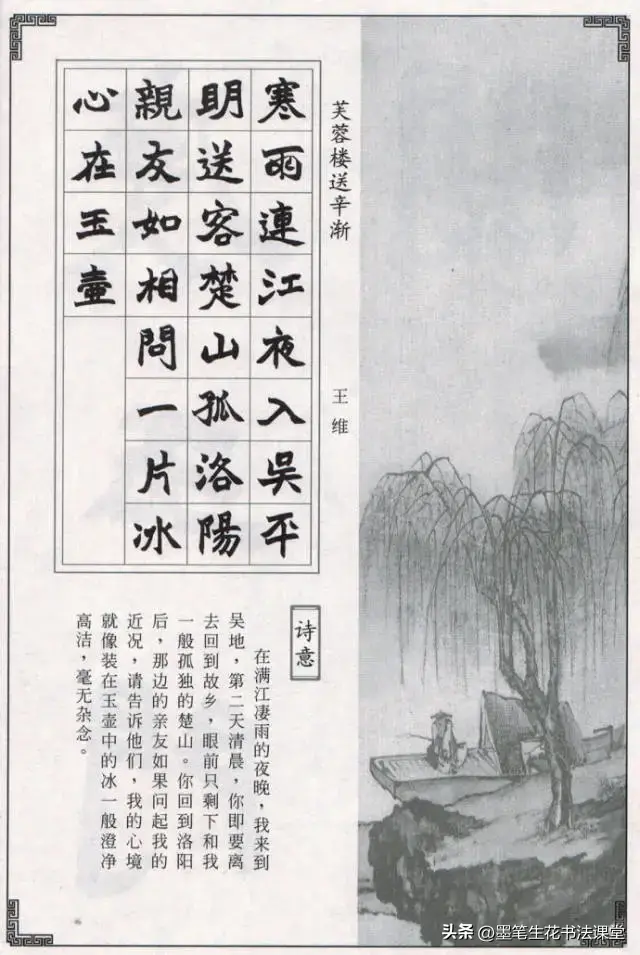 芙蓉楼送辛渐
王维
寒雨連江夜入吳平
明送客楚山孤洛陽
親友如相問一片冰
心在玉壺
诗意
在满江凄雨的夜晚，我来到
吴地，第二天清晨，你即要离
去回到故乡，眼前只剩下和我
一般孤独的楚山。你回到洛阳
后，那边的亲友如果问起我的
近况，请告诉他们，我的心境
就像装在玉壶中的冰一般澄净
高洁，毫无杂念。
头条 @墨笔生花书法课堂